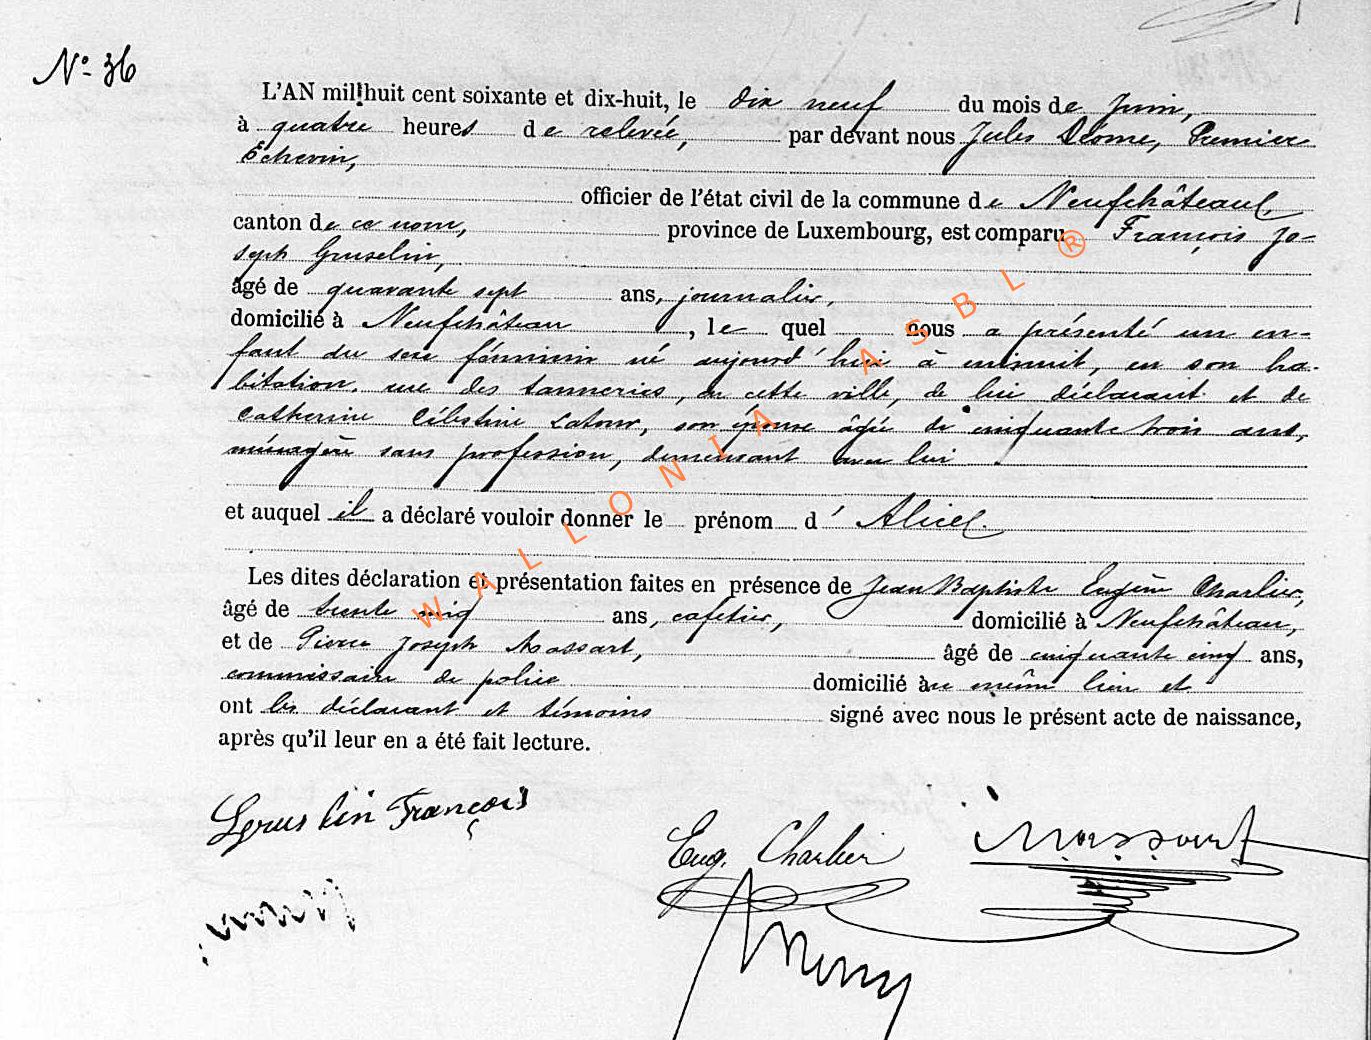 Nº 36
L'AN mil huit cent soixante et dix-huit, le dix neuf du mois de Juin,
à quatre heures de relevée, par devant nous Jules Premier
Échevin,
officier de l'état civil de la commune de Neufchâteau,
canton de ce nom, province de Luxembourg, est comparu François Jo-
seph Gruselin,
âgé de quarante sept ans, journalier,
domicilié à Neufchâteau, le quel nous a présenté un en-
fant du sexe féminin né aujourd'hui à minuit, en son ha-
bitation rue des tanneries, en cette ville, de lui déclarant et de
Catherine Célestine Latour, son épouse âgée de cinquante trois ans,
ménagère sans profession, demeurant avec lui
et auquel il a déclaré vouloir donner le prénom d' Alice.
Les dites déclaration et présentation faites en présence de Jean Baptiste Eugène Charlier,
âgé de trente cinq ans, cafetier, domicilié à Neufchâteau,
et de Pierre Joseph Massart, âgé de cinquante cinq ans,
commissaire de police domicilié au même lieu et
ont les déclarant et témoins signé avec nous le présent acte de naissance,
après qu'il leur en a été fait lecture.
François
Eug. Charlier
Massart
WALLONIA ASBL ®